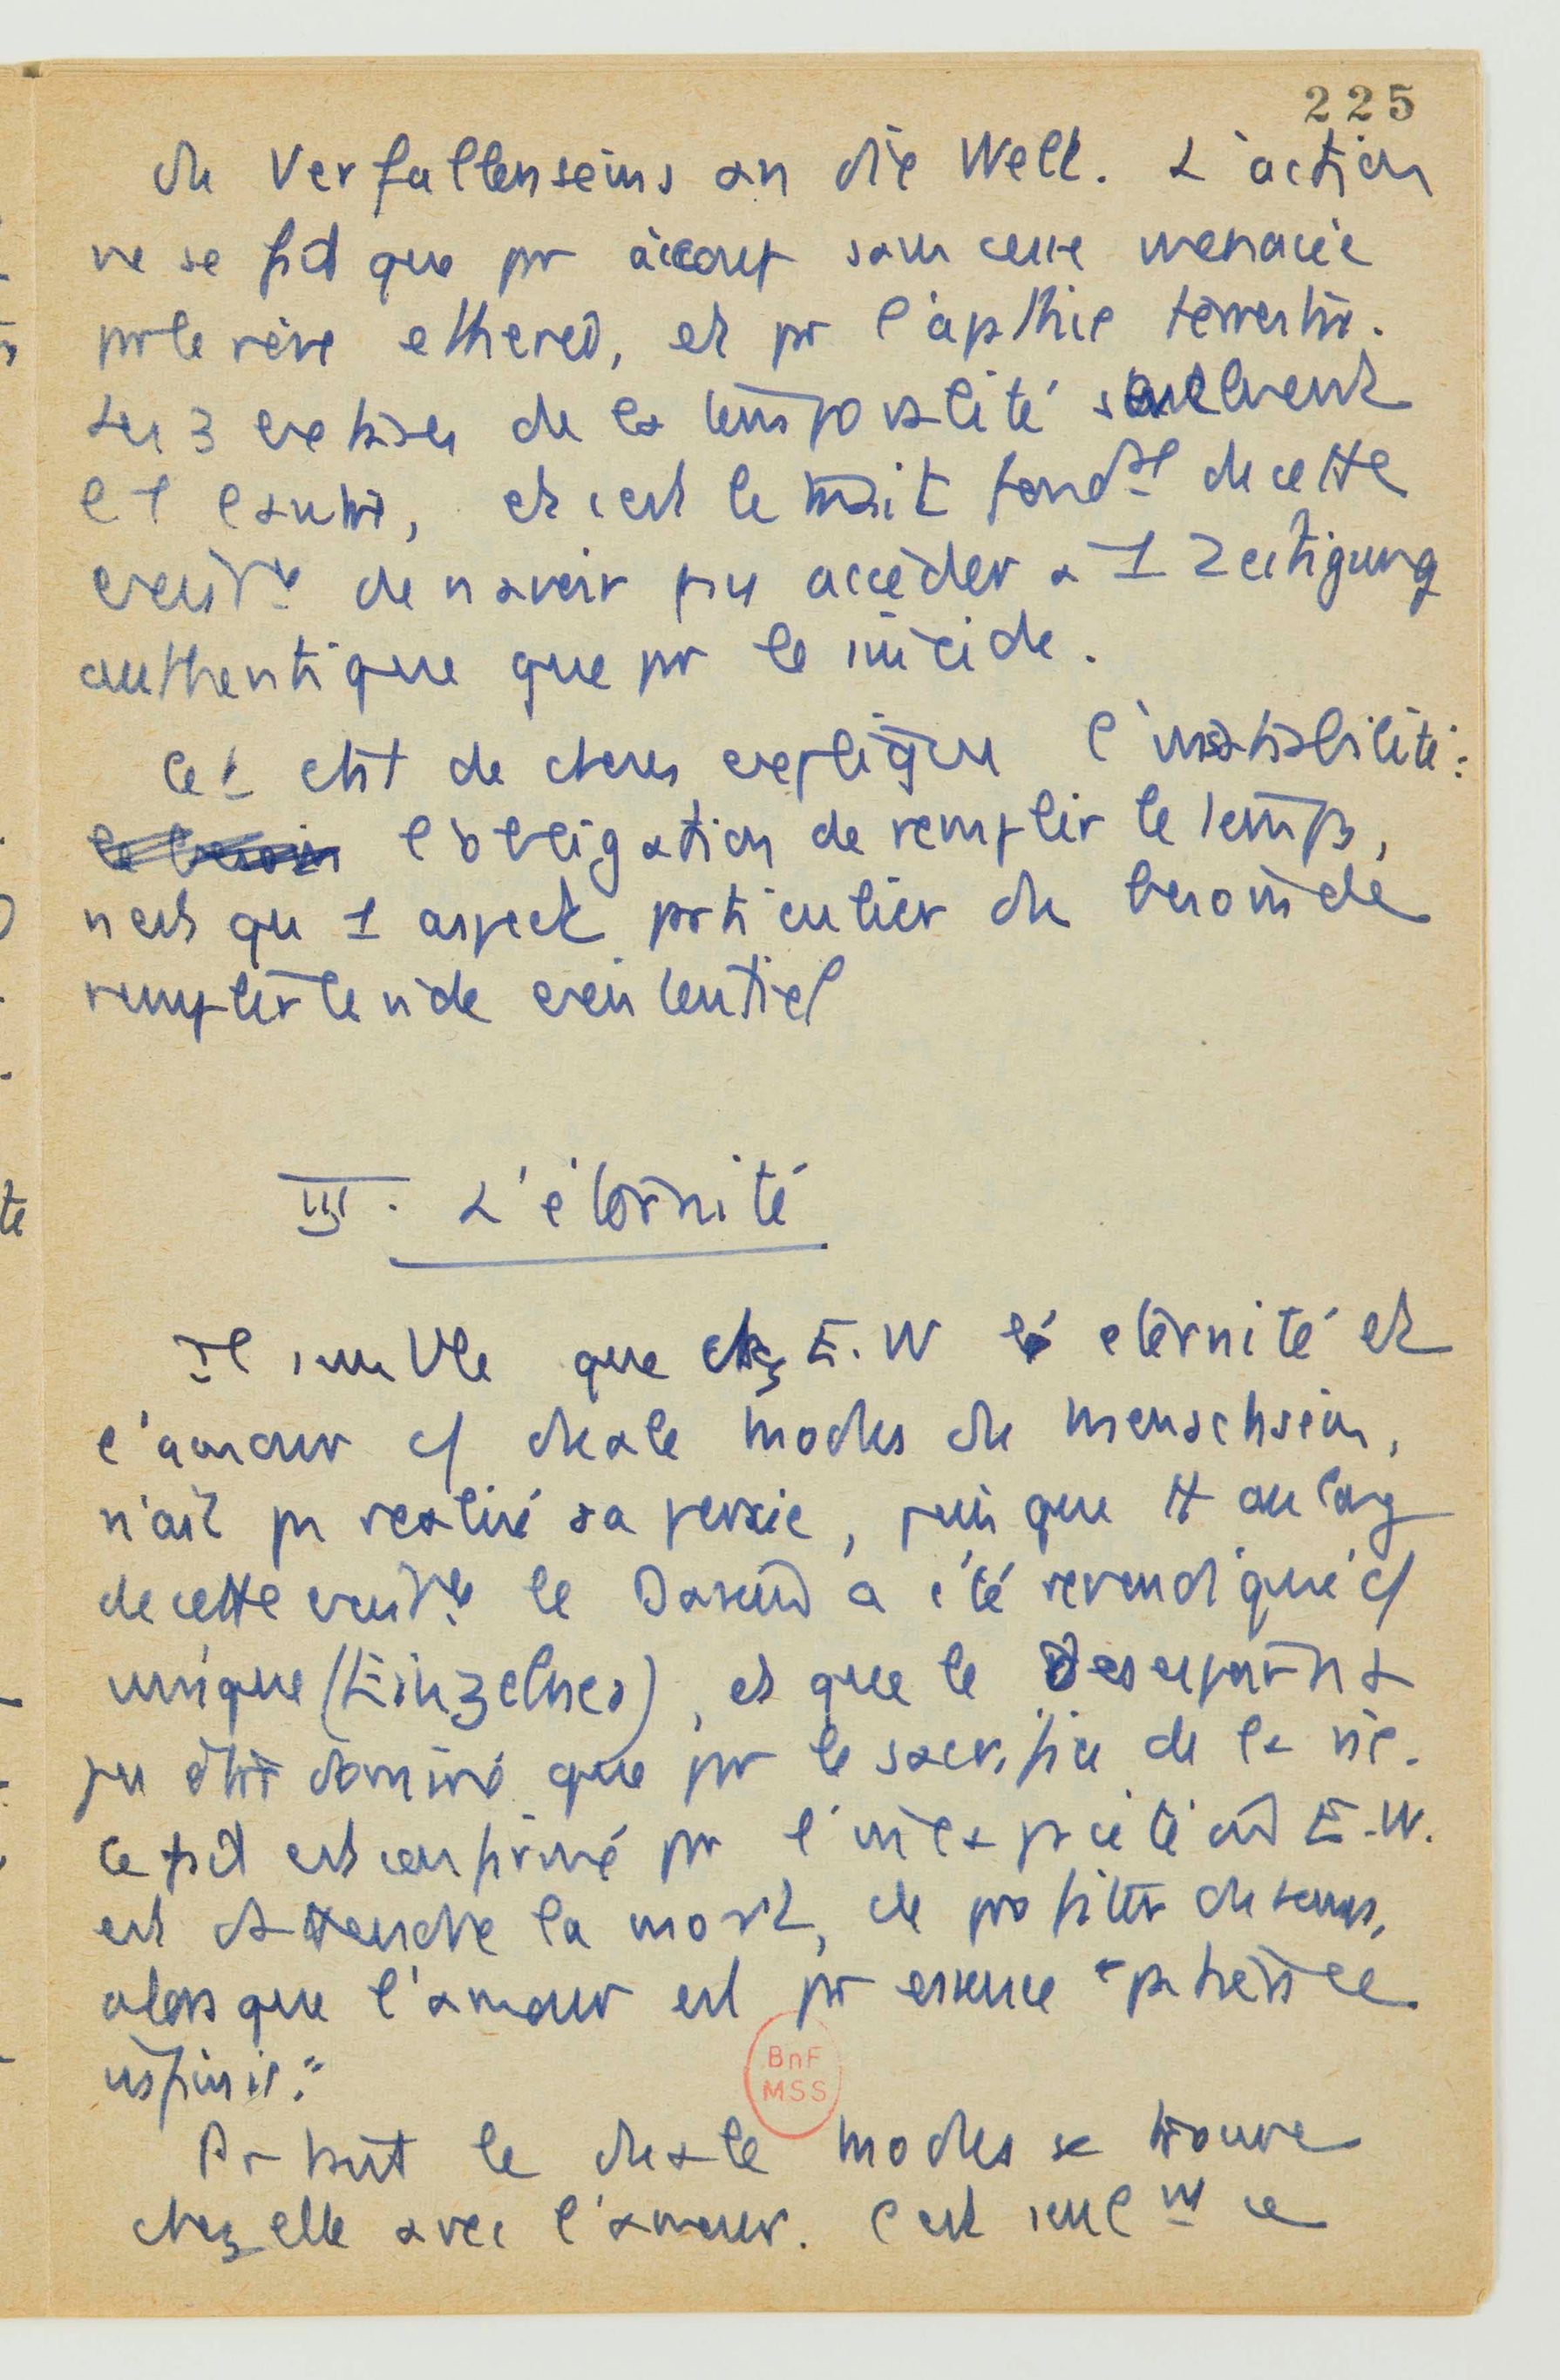 225
du Verfallenseins an die Welt. L'action
ne se fait que par à coup sans cesse menacée
par le rêve ethereo, et par l'apathie terrestre.
Les 3 extases de la temporalité s'enlèvent
l'1 l'autre, et c'est le trait fondal de cette
existce de n'avoir pu accéder à 1 Zeitigung
authentique que par le suicide.
Cet état de choses explique l'insatiabilité :
l'obligation de remplir le temps,
n'est qu'1 aspect particulier du besoin de
remplir le vide existentiel
III. L'éternité
Il semble que chez E.W l'éternité et
l'amour c/ duale modus du Menschsein,
n'ait pas realisé sa percée, puisque tt au long
de cette existce le Dasein a été revendiqué c/
unique (Einzelnes), et que le Desespoir n'a
pu être dominé que par le sacrifice de la vie.
Ce fait est confirmé par l'incapacité où E.W.
est d'attendre la mort, de profiter du temps,
alors que l'amour est par essence "patience
infinie."
Partout le duale modus se trouve
chez elle avec l'amour. C'est seulnt ce
BnF
MSS